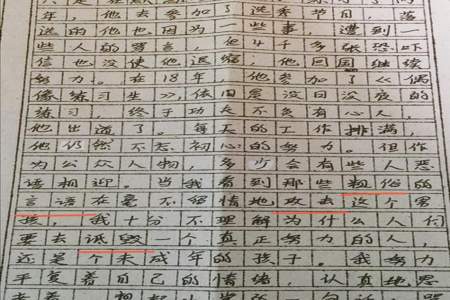 年，他去参加了选秀节目，落
选的他也因为一些事，遭到一
些人的骂言，但4千多张恐吓
信也没使他退缩，他回国继续
努力。在18年，他参加了《偶
像练习生》，依旧是没日没夜的
练习，终于功夫不负有心人，
他出道了。每天的工作排满，
他仍然不忘初心的努力。但作
为公众人物，多少会有些人恶
语相迎。当我看到那些粗俗的
言语在毫不留情地攻击这个男
孩，我十分不理解为什么人们
要去诋毁一个真正努力的人，
还是个未成年的孩子。我努力
平复着自己的情绪，认真地思